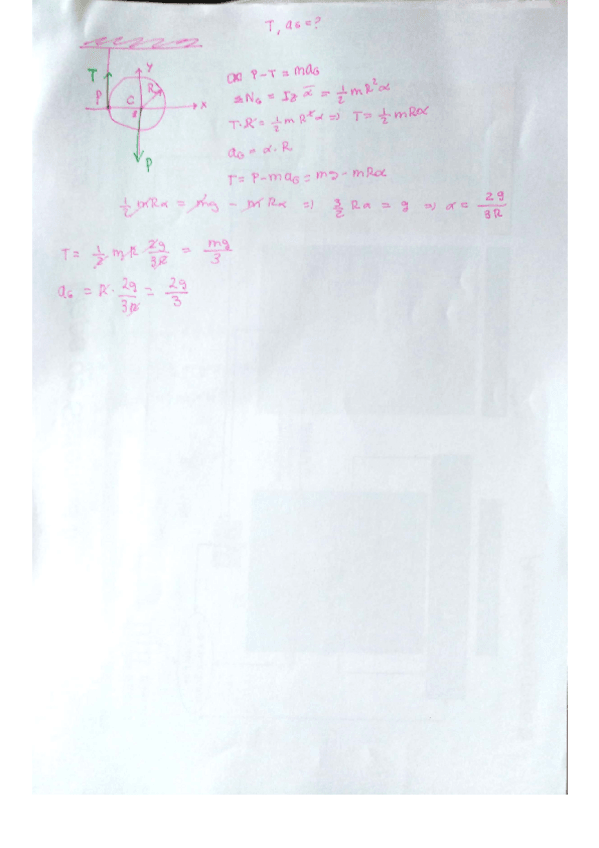 T, a_G = ?
T
y
R
P
C
x
P
P - T = ma_G
N_G = I_G α = 1/2 mR²α
T·R = 1/2 mR²α ⇒ T = 1/2 mRα
a_G = α·R
T = P - ma_G = mg - mRα
1/2 mRα = mg - mRα ⇒ 3/2 Rα = g ⇒ α = 2g/3R
T = 1/2 mR 2g/3R = mg/3
a_G = R · 2g/3R = 2g/3